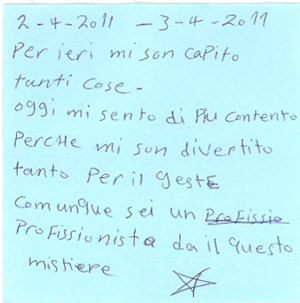 2-4-2011 - 3-4-2011
Per ieri mi son capito
tanti cose -
oggi mi sento di Più contento
PercHe mi son divertito
tanto Per il geste
Comunque sei un ProFissio
ProFissionista da il questo
mistiere